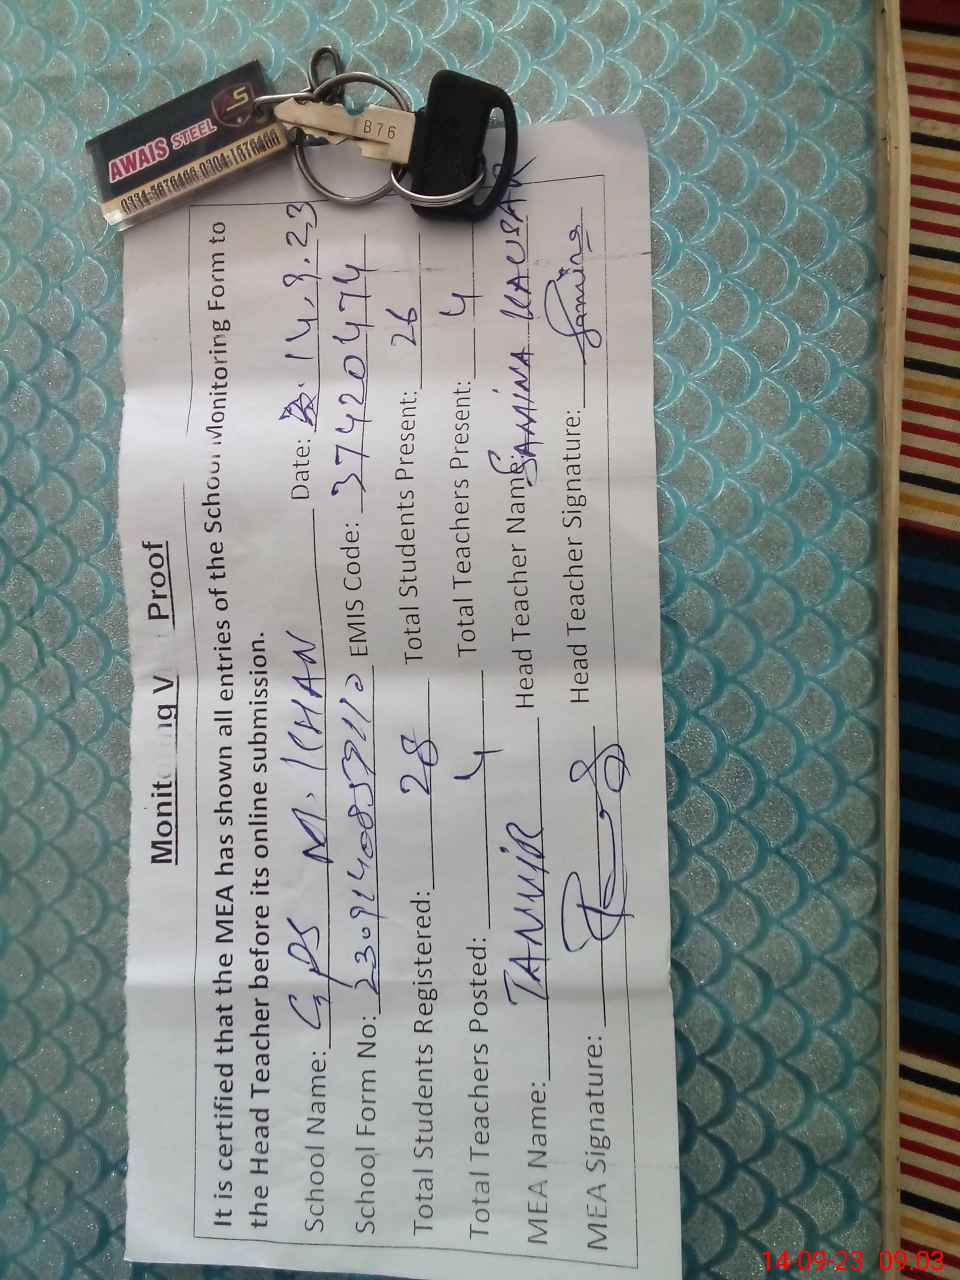 Monitoring V Proof
It is certified that the MEA has shown all entries of the School Monitoring Form to
the Head Teacher before its online submission.
School Name: GPS M. KHAN Date: 14.9.23
School Form No: EMIS Code: 37420474
Total Students Registered: 28 Total Students Present: 26
Total Teachers Posted: 4 Total Teachers Present: 4
MEA Name: TANVIR Head Teacher Name: SAMINA KAUSAR
MEA Signature: Head Teacher Signature: Samina
AWAIS STEEL
B76
14-09-23 09:03